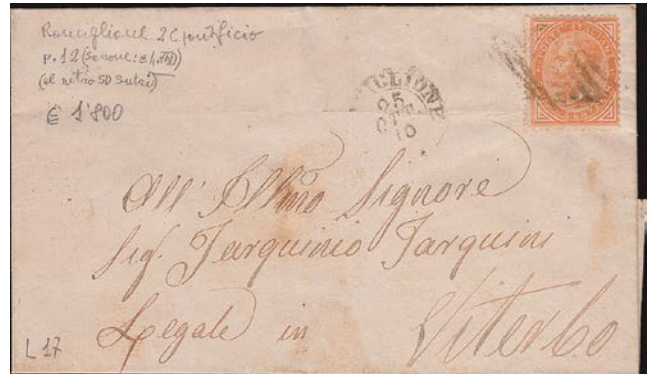 Ronciglione 2C pontificio
P. 12
(al retro SD Sutri)
€ 1'800
GLIONE
25
OTT
70
POSTE ITALIANE
All' Illmo Signore
Sig. Tarquinio Tarquini
Legale in Viterbo
L 17